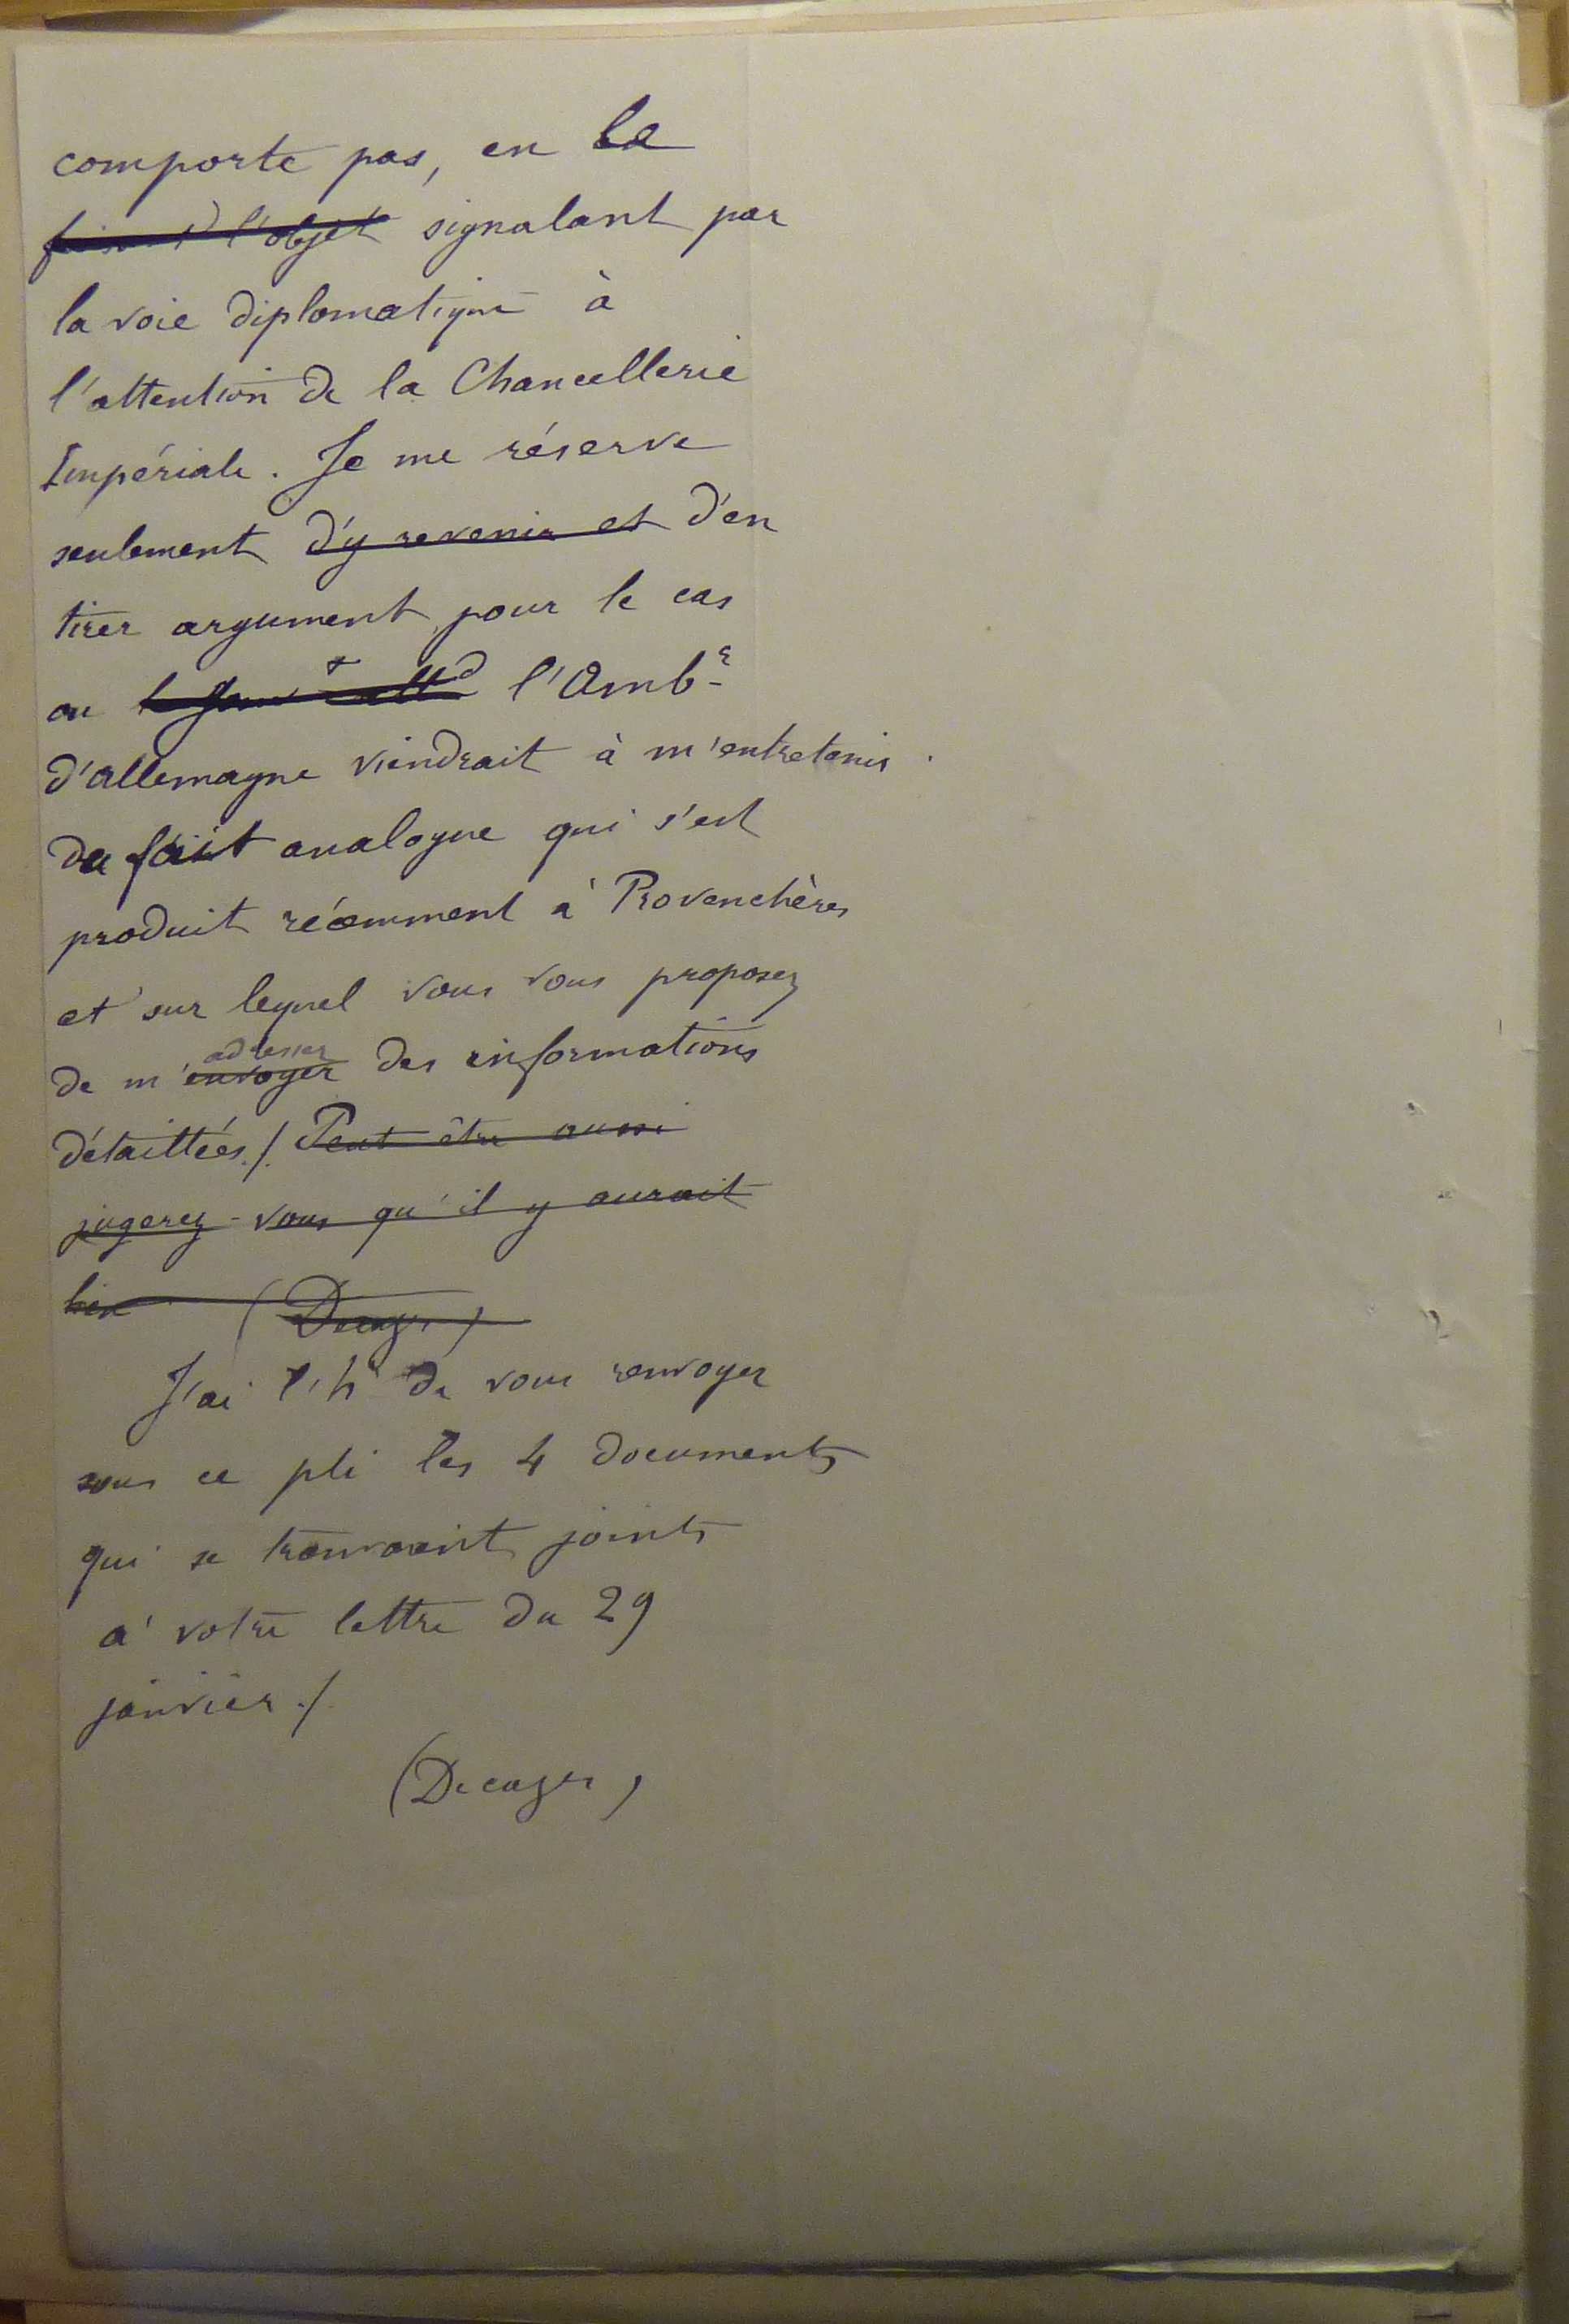 comporte pas, en le
l'objet signalant par
la voie diplomatique à
l'attention de la Chancellerie
Impériale. Je me réserve
seulement d'y revenir et d'en
tirer argument pour le cas
ou l'Ambr
d'allemagne viendrait à m'entretenir
du fait analogue qui s'est
produit récemment à Provenchères
et sur lequel vous vous proposez
adresser
de m'envoyer des informations
détaillées ./. Peut être aussi
jugerez-vous qu'il y aurait
lieu (Decazes)
J'ai l'hr de vous renvoyer
sous ce pli les 4 documents
qui se trouvaient joints
à votre lettre du 29
janvier ./.
(Decazes)